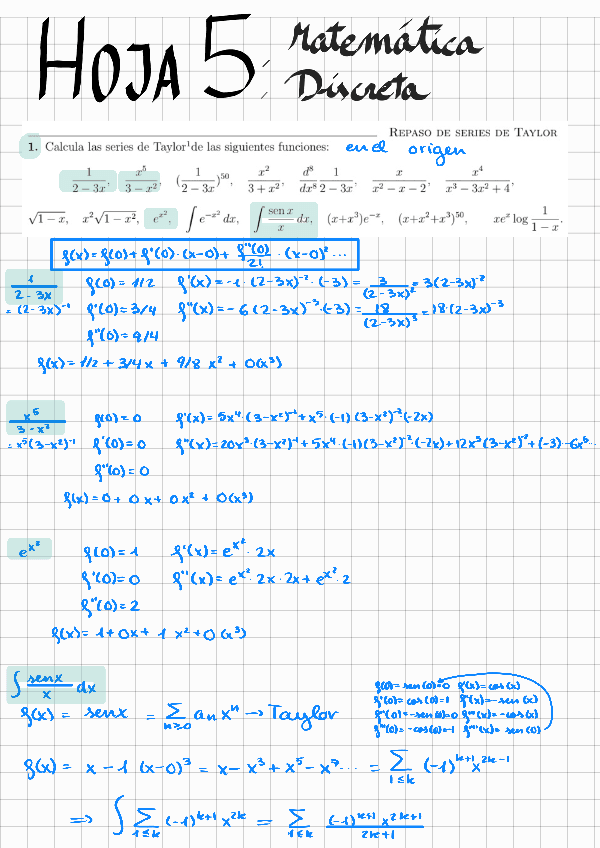 HOJA 5: Matemática
Discreta
REPASO DE SERIES DE TAYLOR
1. Calcula las series de Taylor¹de las siguientes funciones: en el origen
1/(2−3x), x⁵/(3−x²), (1/(2−3x))⁵⁰, x²/(3+x²), d⁸/dx⁸ 1/(2−3x), x/(x²−x−2), x⁴/(x³−3x²+4),
√(1−x), x²√(1−x²), e^(x²), ∫e^(−x²) dx, ∫(sen x)/x dx, (x+x³)e^(−x), (x+x²+x³)⁵⁰, xeˣ log 1/(1−x).
f(x) = f(0) + f'(0)·(x−0) + f''(0)/2! · (x−0)² ...
1/(2−3x) f(0) = 1/2 f'(x) = −1·(2−3x)⁻²·(−3) = 3/(2−3x)² = 3(2−3x)⁻²
= (2−3x)⁻¹ f'(0) = 3/4 f''(x) = −6(2−3x)⁻³·(−3) = 18/(2−3x)³ = 18·(2−3x)⁻³
f''(0) = 9/4
f(x) = 1/2 + 3/4 x + 9/8 x² + O(x³)
x⁵/(3−x²) f(0) = 0 f'(x) = 5x⁴·(3−x²)⁻¹ + x⁵·(−1)(3−x²)⁻²(−2x)
= x⁵(3−x²)⁻¹ f'(0) = 0 f''(x) = 20x³·(3−x²)⁻¹ + 5x⁴·(−1)(3−x²)⁻²(−2x) + 12x⁵(3−x²)⁻² + (−3)·6x⁶...
f''(0) = 0
f(x) = 0 + 0x + 0x² + O(x³)
e^(x²) f(0) = 1 f'(x) = e^(x²) · 2x
f'(0) = 0 f''(x) = e^(x²) · 2x · 2x + e^(x²) · 2
f''(0) = 2
f(x) = 1 + 0x + 1x² + O(x³)
∫ senx/x dx
f(0) = sen(0) = 0 f'(x) = cos(x)
f'(0) = cos(0) = 1 f''(x) = −sen(x)
f''(0) = −sen(0) = 0 f'''(x) = −cos(x)
f'''(0) = −cos(0) = −1 f''''(x) = sen(0)
f(x) = senx = Σ_(n≥0) aₙxⁿ → Taylor
f(x) = x − 1(x−0)³ = x − x³ + x⁵ − x⁷... = Σ_(1≤k) (−1)^(k+1) x^(2k−1)
⇒ ∫ Σ_(1≤k) (−1)^(k+1) x^(2k) = Σ_(1≤k) (−1)^(k+1) x^(2k+1)/(2k+1)